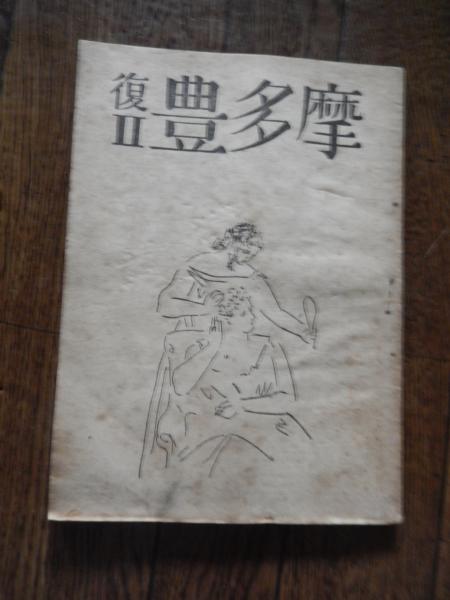 復
II
豊多摩